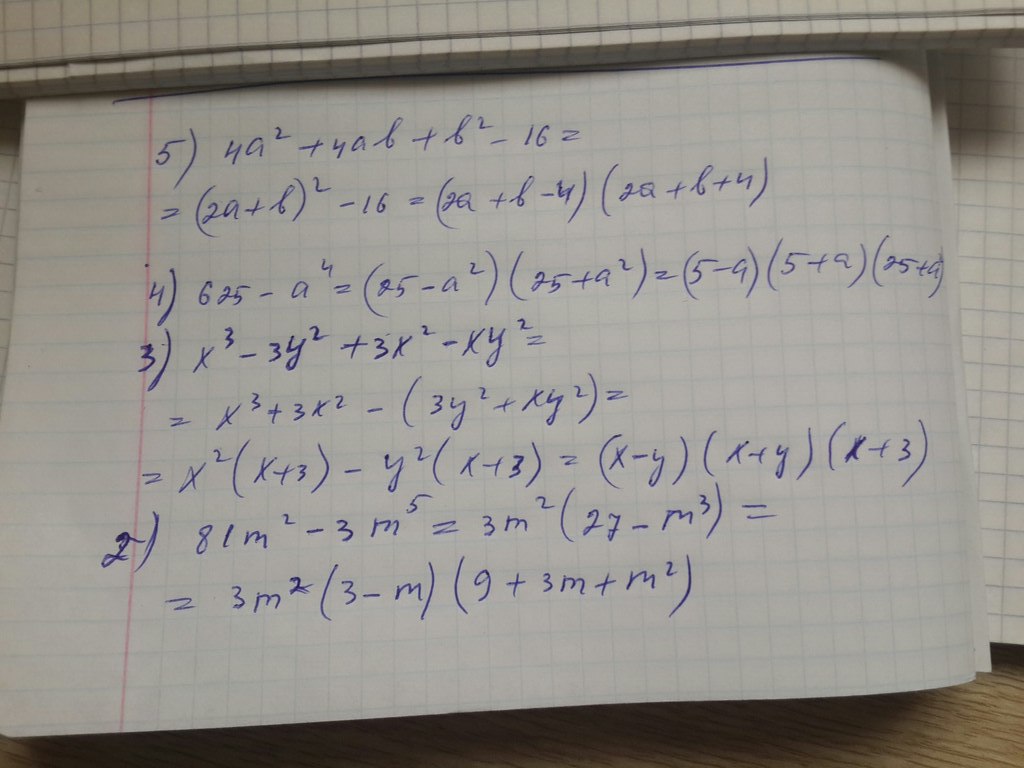 5) 4a² + 4ab + b² - 16 =
= (2a + b)² - 16 = (2a + b - 4) (2a + b + 4)
4) 625 - a⁴ = (25 - a²) (25 + a²) = (5 - a) (5 + a) (25 + a
3) x³ - 3y² + 3x² - xy² =
= x³ + 3x² - (3y² + xy²) =
= x² (x + 3) - y² (x + 3) = (x - y) (x + y) (x + 3)
2) 81m² - 3m⁵ = 3m² (27 - m³) =
= 3m² (3 - m) (9 + 3m + m²)